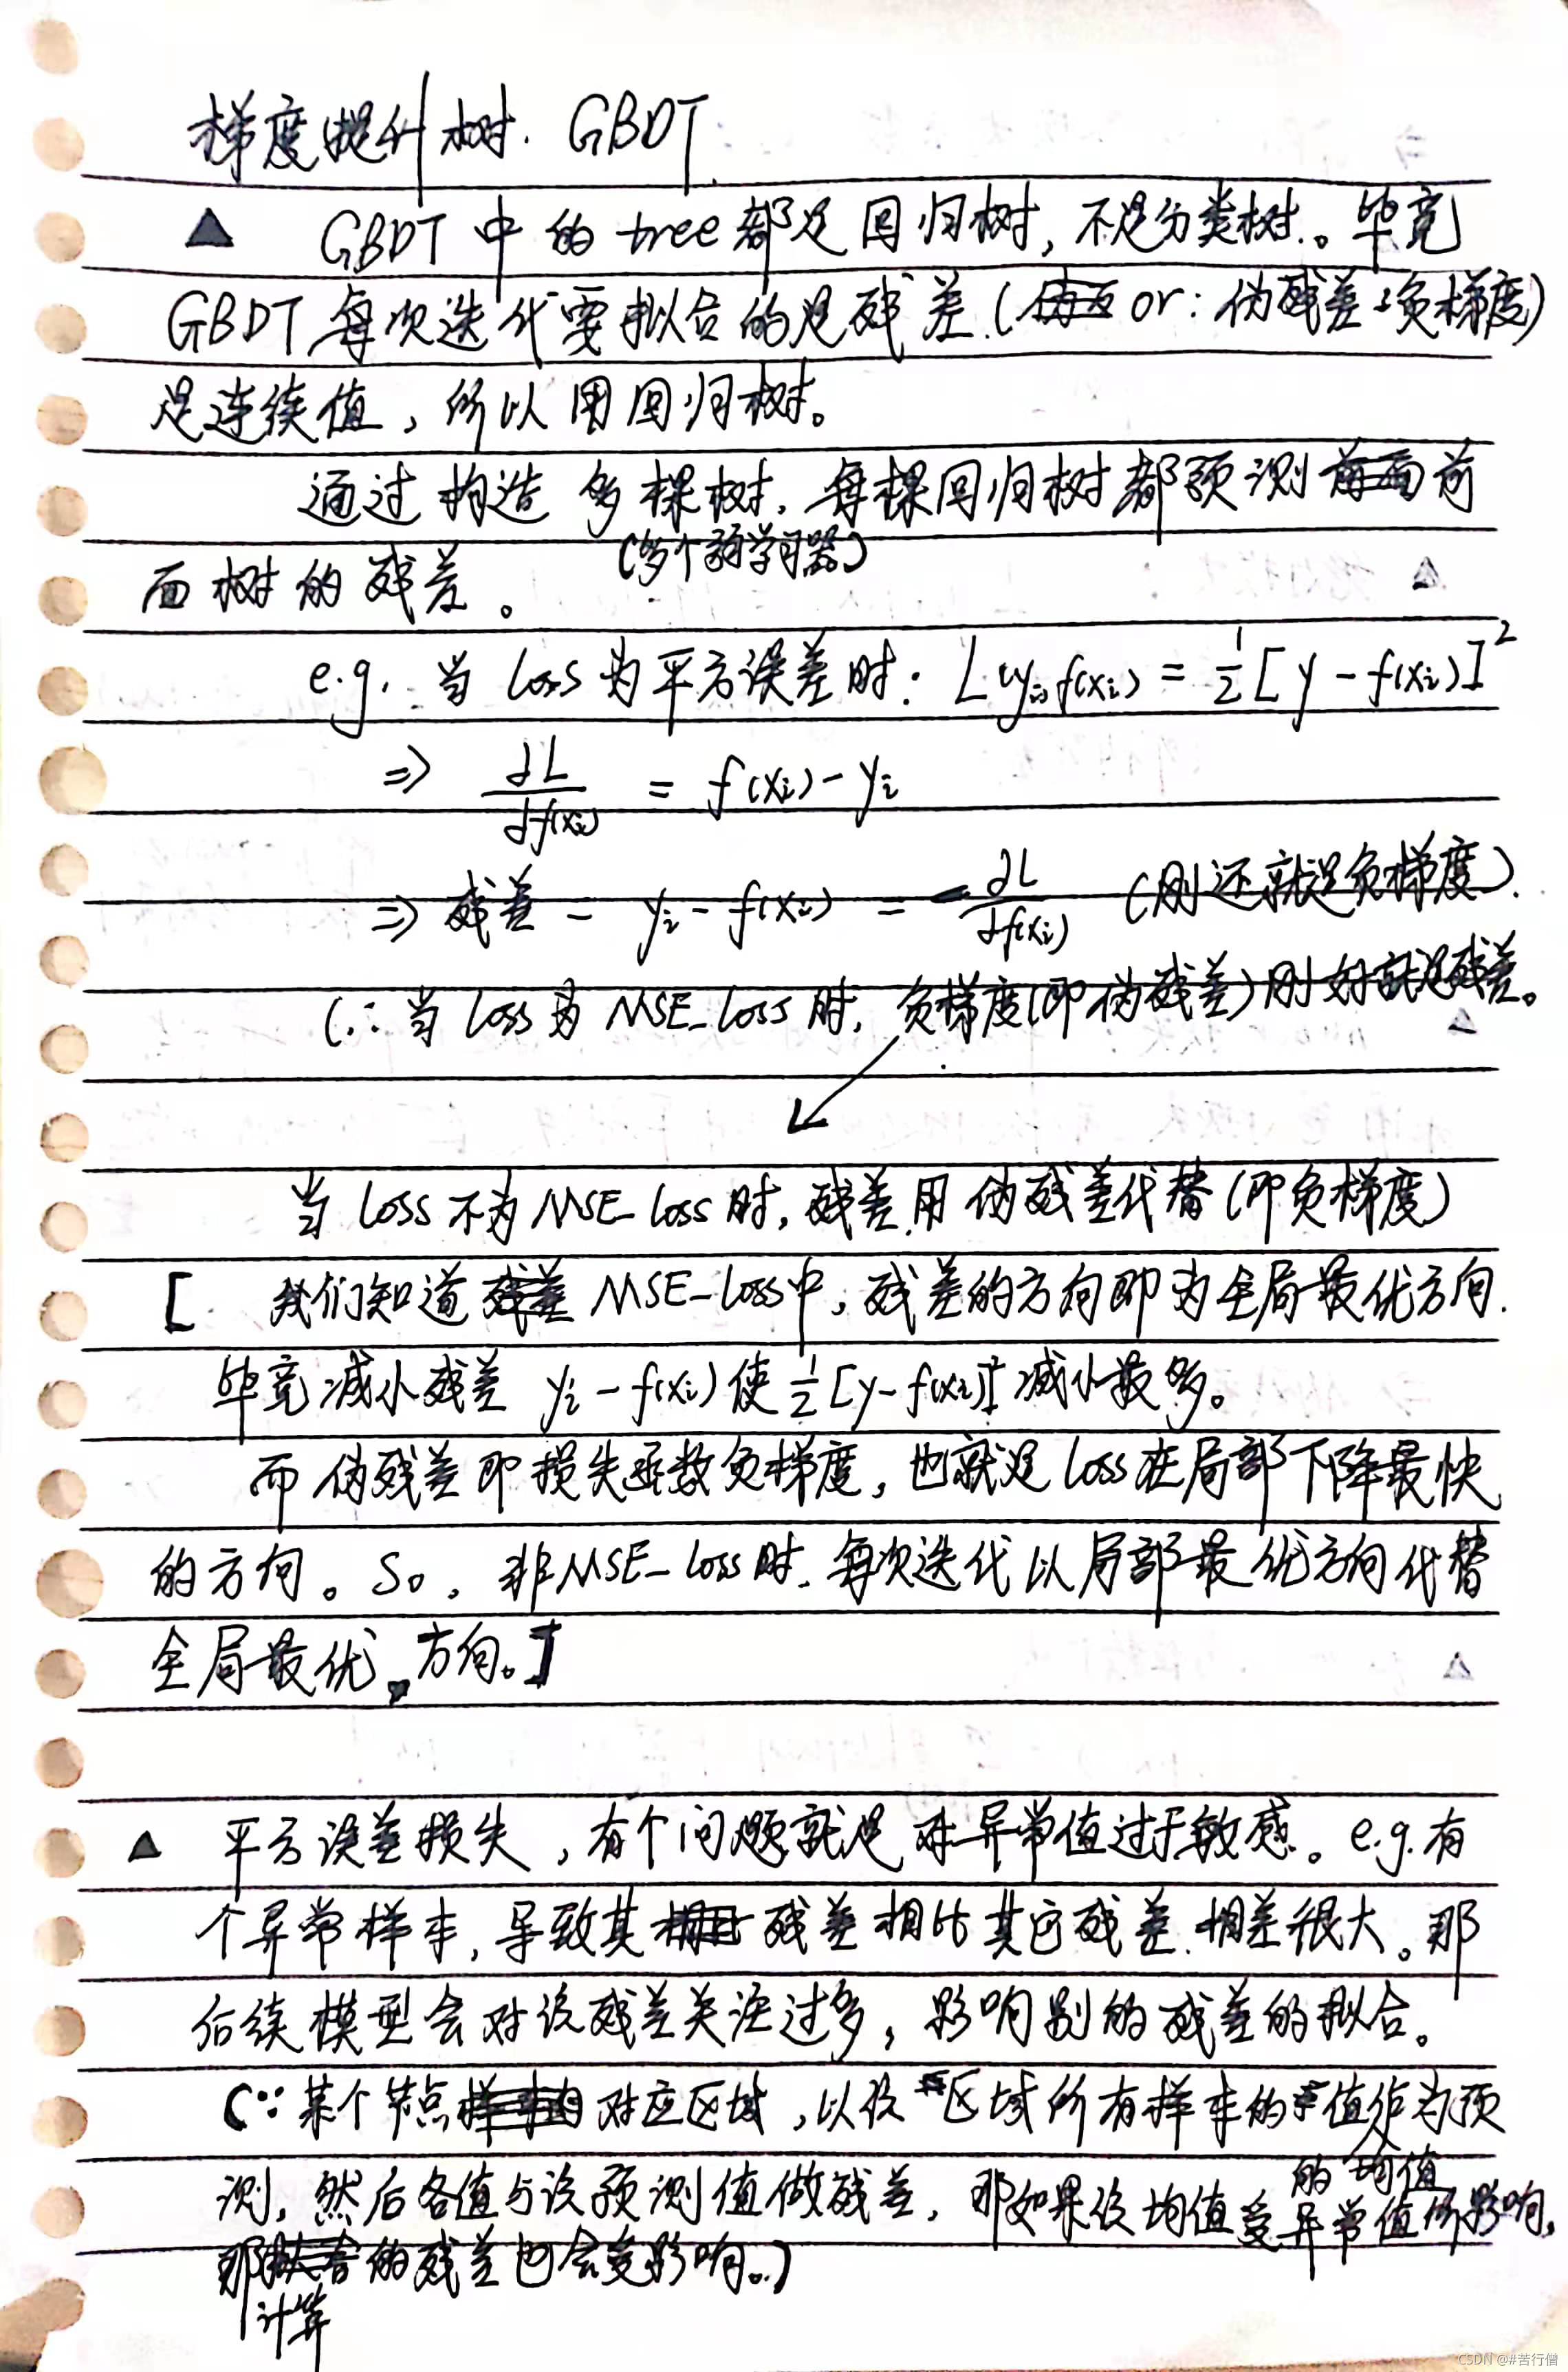 梯度提升树. GBDT
▲ GBDT 中的 tree 都是回归树, 不是分类树。毕竟
GBDT 每次迭代需要拟合的是残差.( or: 伪残差:负梯度)
是连续值, 所以用回归树。
通过构造多棵树. 每棵回归树都预测前
(多个弱学习器)
面树的残差。
e.g. 当 Loss 为平方误差时: L(yi,f(xi)) = 1/2 [y - f(xi)]²
⇒ ∂L/∂f(xi) = f(xi) - yi
⇒ 残差 = yi - f(xi) = - ∂L/∂f(xi) (刚还就是负梯度).
(∴ 当 Loss 为 MSE_Loss 时, 负梯度(即伪残差)刚好就是残差。
当 Loss 不为 MSE_Loss 时, 残差用伪残差代替(即负梯度)
[ 我们知道 MSE_Loss 中, 残差的方向即为全局最优方向.
毕竟减小残差 yi - f(xi) 使 1/2 [y - f(xi)]² 减小最多。
而伪残差即损失函数负梯度, 也就是 Loss 在局部下降最快
的方向。So, 非 MSE_Loss 时. 每次迭代以局部最优方向代替
全局最优方向。]
▲ 平方误差损失, 有个问题就是对异常值过于敏感。e.g. 有
个异常样本, 导致其残差相比其它残差相差很大。那
后续模型会对该残差关注过多, 影响别的残差的拟合。
(∵ 某个节点对应区域, 以该区域所有样本的值作为预
的均值
测, 然后各值与该预测值做残差, 那如果该均值受异常值所影响,
那的残差也会受影响。)
计算
CSDN @#苦行僧